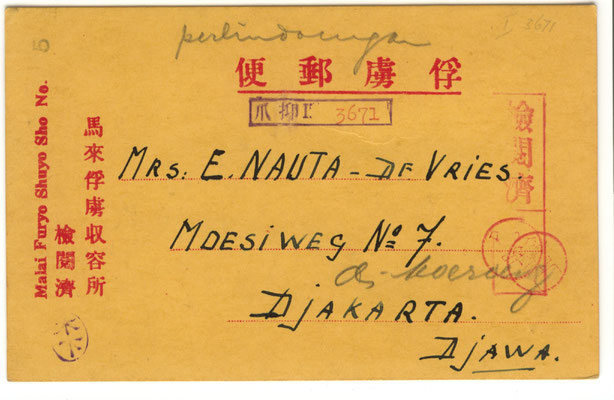 perlindoengan
I 3671
5
便郵虜俘
爪抑I 3671
檢閲濟
MRS: E. NAUTA - DE VRIES.
MOESIWEG No 7.
DJAKARTA.
DJAWA.
馬來俘虜収容所
檢閲濟
Malai Furyo Shuyo Sho No.